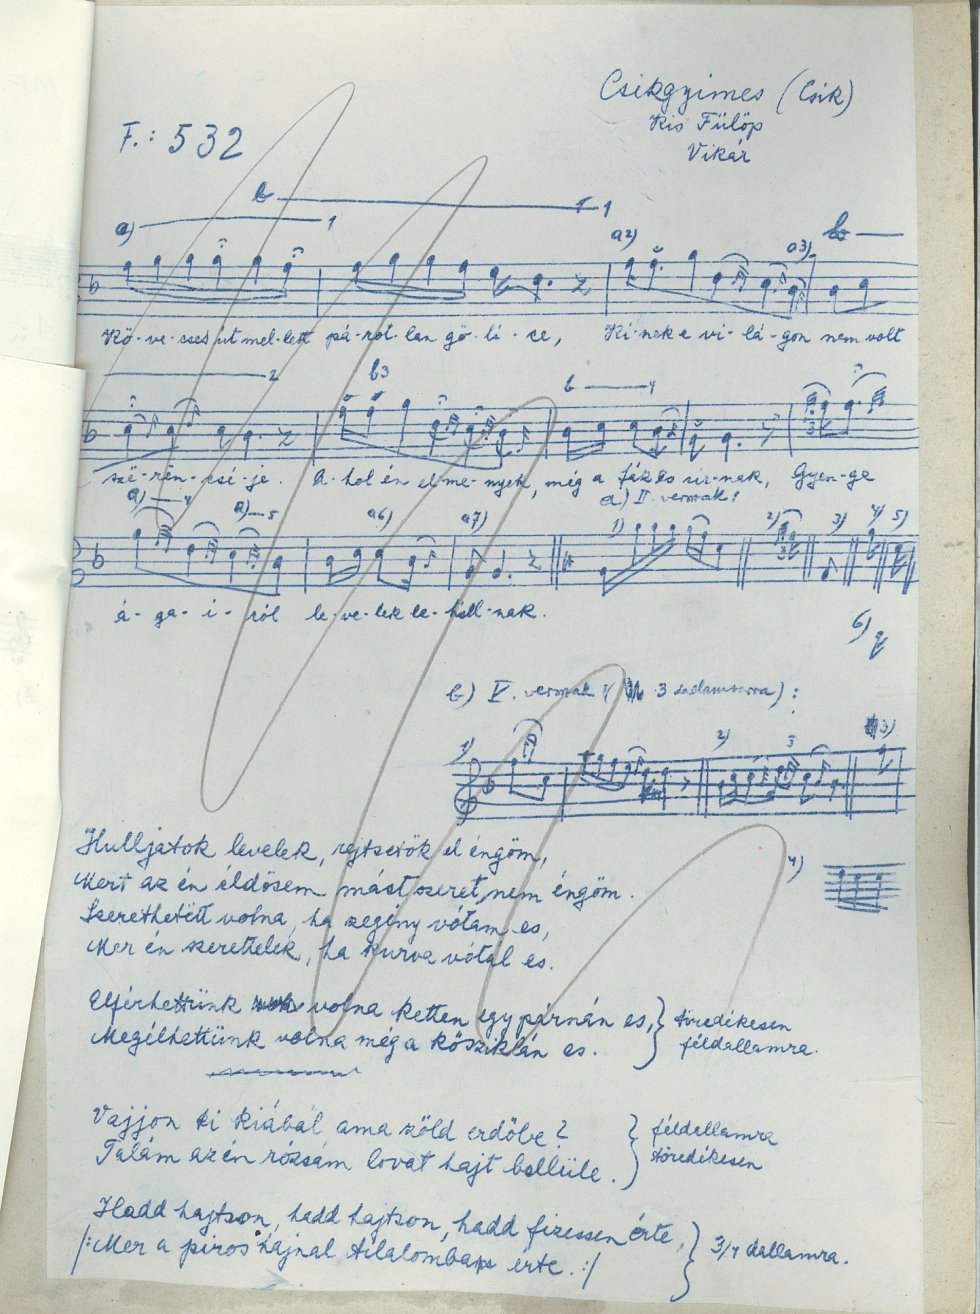 Csikgyimes (Csik)
Kis Fülöp
Vikár
F.: 532
b 1
a) 1
a2) a3) b
Kö-ve-cses út mel-lett pá-rat-lan gö-li-ce, Ki-nek e vi-lá-gon nem volt
2 b3 b 4
szë-rën-csé-je. A-hol én el-me-nyek, még a fák es sir-nak, Gyen-ge
a) 4 a) 5 a6) a7) a) II. versszak:
1) 2) 3) 4) 5)
á-ga-i-ról le-ve-lek le-hull-nak.
6)
b) V. versszak 3 dallamsorra):
1) 2) 3 3)
4)
Hulljatok levelek, rejtsetök el éngöm,
Mert az én éldösem mást szeret, nem éngöm.
Szerethetött volna, ha szegény vótam es,
Mer én szerettelek, ha kurva vótál es.
Elférhettünk volna ketten egy párnán es, } töredékesen
Megélhettünk volna még a kősziklán es. } féldallamra.
Vajjon ki kiábál ama zöld erdőbe? } féldallamra
Talám az én rózsám lovat hajt bellüle. } töredékesen
Hadd hajtson, hadd hajtson, hadd fizessen érte,
/:Mer a piros hajnal tilalomban érte.:/ } 3/4 dallamra.